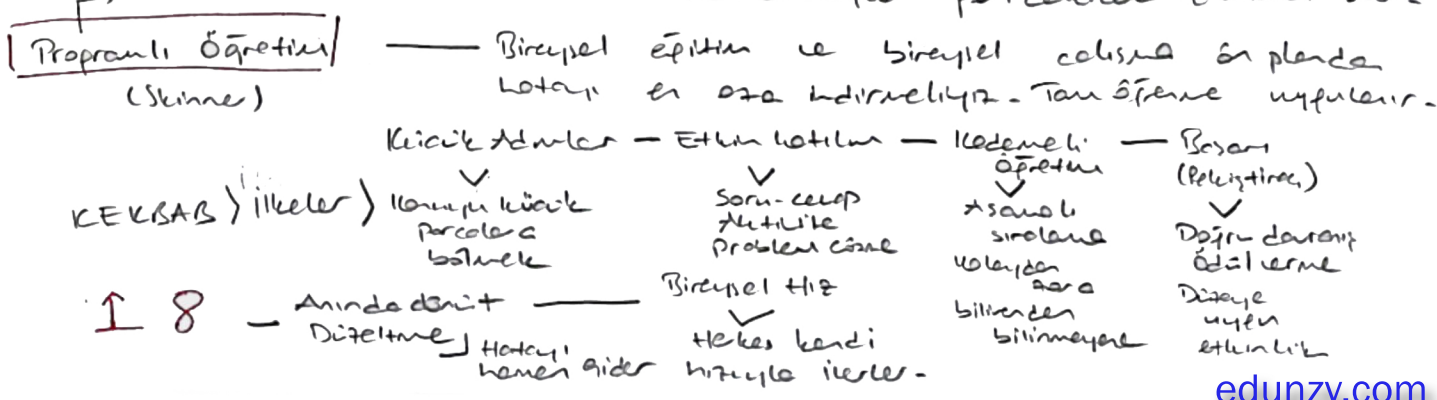 Programlı Öğretim — Bireysel eğitim ve bireysel çalışma ön planda
(Skinner) hatayı en aza indirmeliyiz. Tam öğrenme uygulanır.
Küçük Adımlar — Etkin katılım — Kademeli öğretim — Başarı (Pekiştireç)
KEKBAB > İlkeler >
Konuyu küçük
parçalara
bölmek
Soru-cevap
Aktivite
Problem çözme
Aşamalı
sıralama
kolaydan
zora
bilinenden
bilinmeyene
Doğru davranış
ödül verme
Düzeye
uygun
etkinlik
18 – Anında dönüt — Bireysel Hız
Düzeltme
Hatayı
hemen gider
Herkes kendi
hızıyla ilerler.
edunzy.com